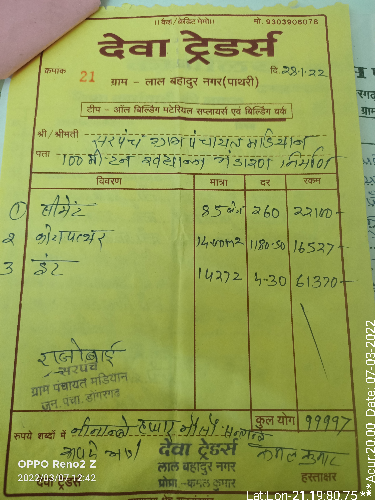 ।। कैश/क्रेडिट मेमो ।। मो. 9303906078
देवा ट्रेडर्स
क्रमांक 21 दि. 28-1-22
ग्राम - लाल बहादुर नगर (पाथरी)
टीप - ऑल बिल्डिंग मटेरियल सप्लायर्स एवं बिल्डिंग वर्क
श्री/श्रीमती सरपंच ग्राम पंचायत मडियान
पता 100 मी टन निर्माण
विवरण मात्रा दर रकम
1 सीमेंट 85 बेग 260 22100-
2 1180-50 16527-
3 ईंट 14272 4-30 61370-
राजोबाई
सरपंच
ग्राम पंचायत मडियान
जन. पंचा. डोंगरगढ़
कुल योग 99997
रुपये शब्दों में हजार नौ सौ
देवा ट्रेडर्स
लाल बहादुर नगर
प्रोपा.-कमल कुमार
कमल कुमार
देवा ट्रेडर्स हस्ताक्षर
OPPO Reno2 Z
2022/03/07 12:42
Lat:Lon-21.1980.75***Acur 20.00, Date, 07-03-2022